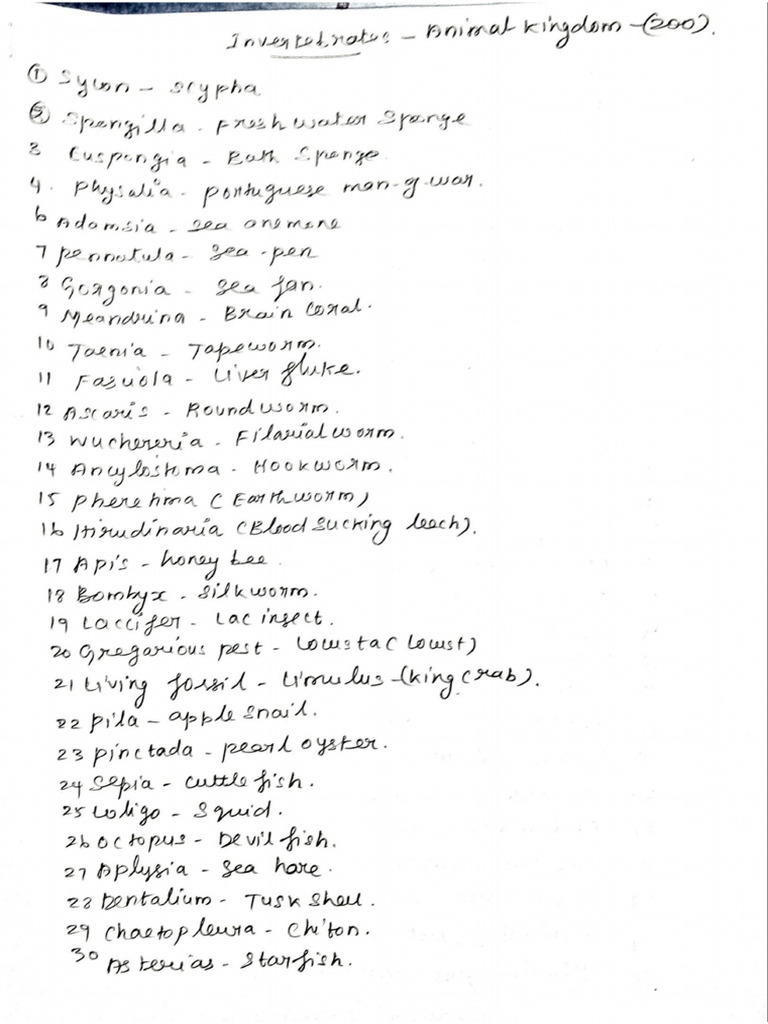 Invertebrates - Animal kingdom - (200).
① Sycon - scypha
② Spongilla - Fresh water Sponge
3 Euspongia - Bath Sponge
4. Physalia - portuguese man-of-war.
6 Adamsia - sea anemone
7 pennatula - Sea-pen
8 Gorgonia - Sea fan.
9 Meandrina - Brain Coral.
10 Taenia - Tapeworm.
11 Fasciola - Liver fluke.
12 Ascaris - Roundworm.
13 Wuchereria - Filarial worm.
14 Ancylostoma - Hookworm.
15 Pheretima (Earthworm)
16 Hirudinaria (Blood Sucking leech).
17 Apis - honey bee.
18 Bombyx - Silkworm.
19 Laccifer - Lac insect.
20 Gregarious pest - Locusta (Locust)
21 Living fossil - Limulus - (King crab).
22 pila - apple snail.
23 pinctada - pearl oyster.
24 Sepia - cuttle fish.
25 Loligo - Squid.
26 Octopus - Devil fish.
27 Aplysia - Sea hare.
28 Dentalium - Tusk shell.
29 Chaetopleura - Chiton.
30 Asterias - Starfish.